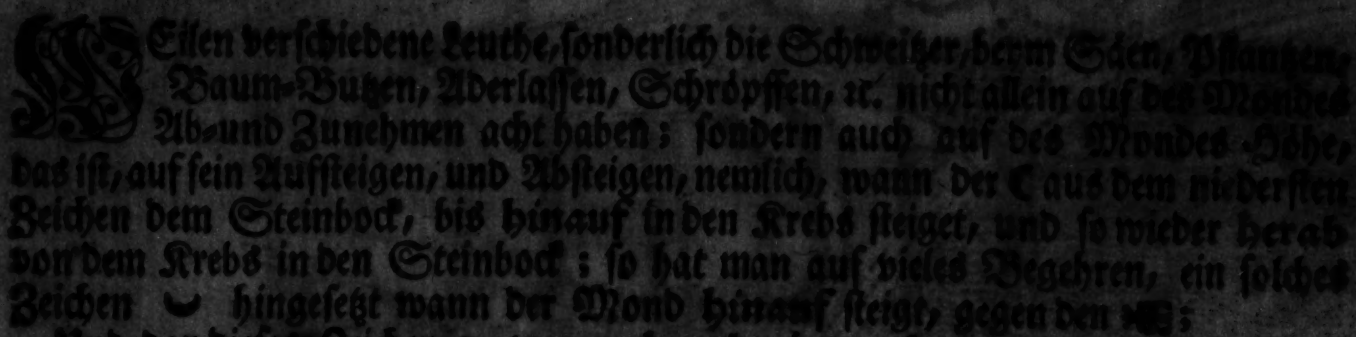 WEilen verschiedene Leuthe, sonderlich die Schweitzer, beym Säen, Pflantzen,
Baum-Butzen, Aderlassen, Schröpffen, ꝛc. nicht allein auf des Mondes
Ab- und Zunehmen acht haben; sondern auch auf des Mondes Höhe,
das ist, auf sein Aufsteigen, und Absteigen, nemlich, wann der ☾ aus dem niedersten
Zeichen dem Steinbock, bis hinauf in den Krebs steiget, und so wieder herab
von dem Krebs in den Steinbock; so hat man auf vieles Begehren, ein solches
Zeichen ◡ hingesetzt wann der Mond hinauf steigt, gegen den